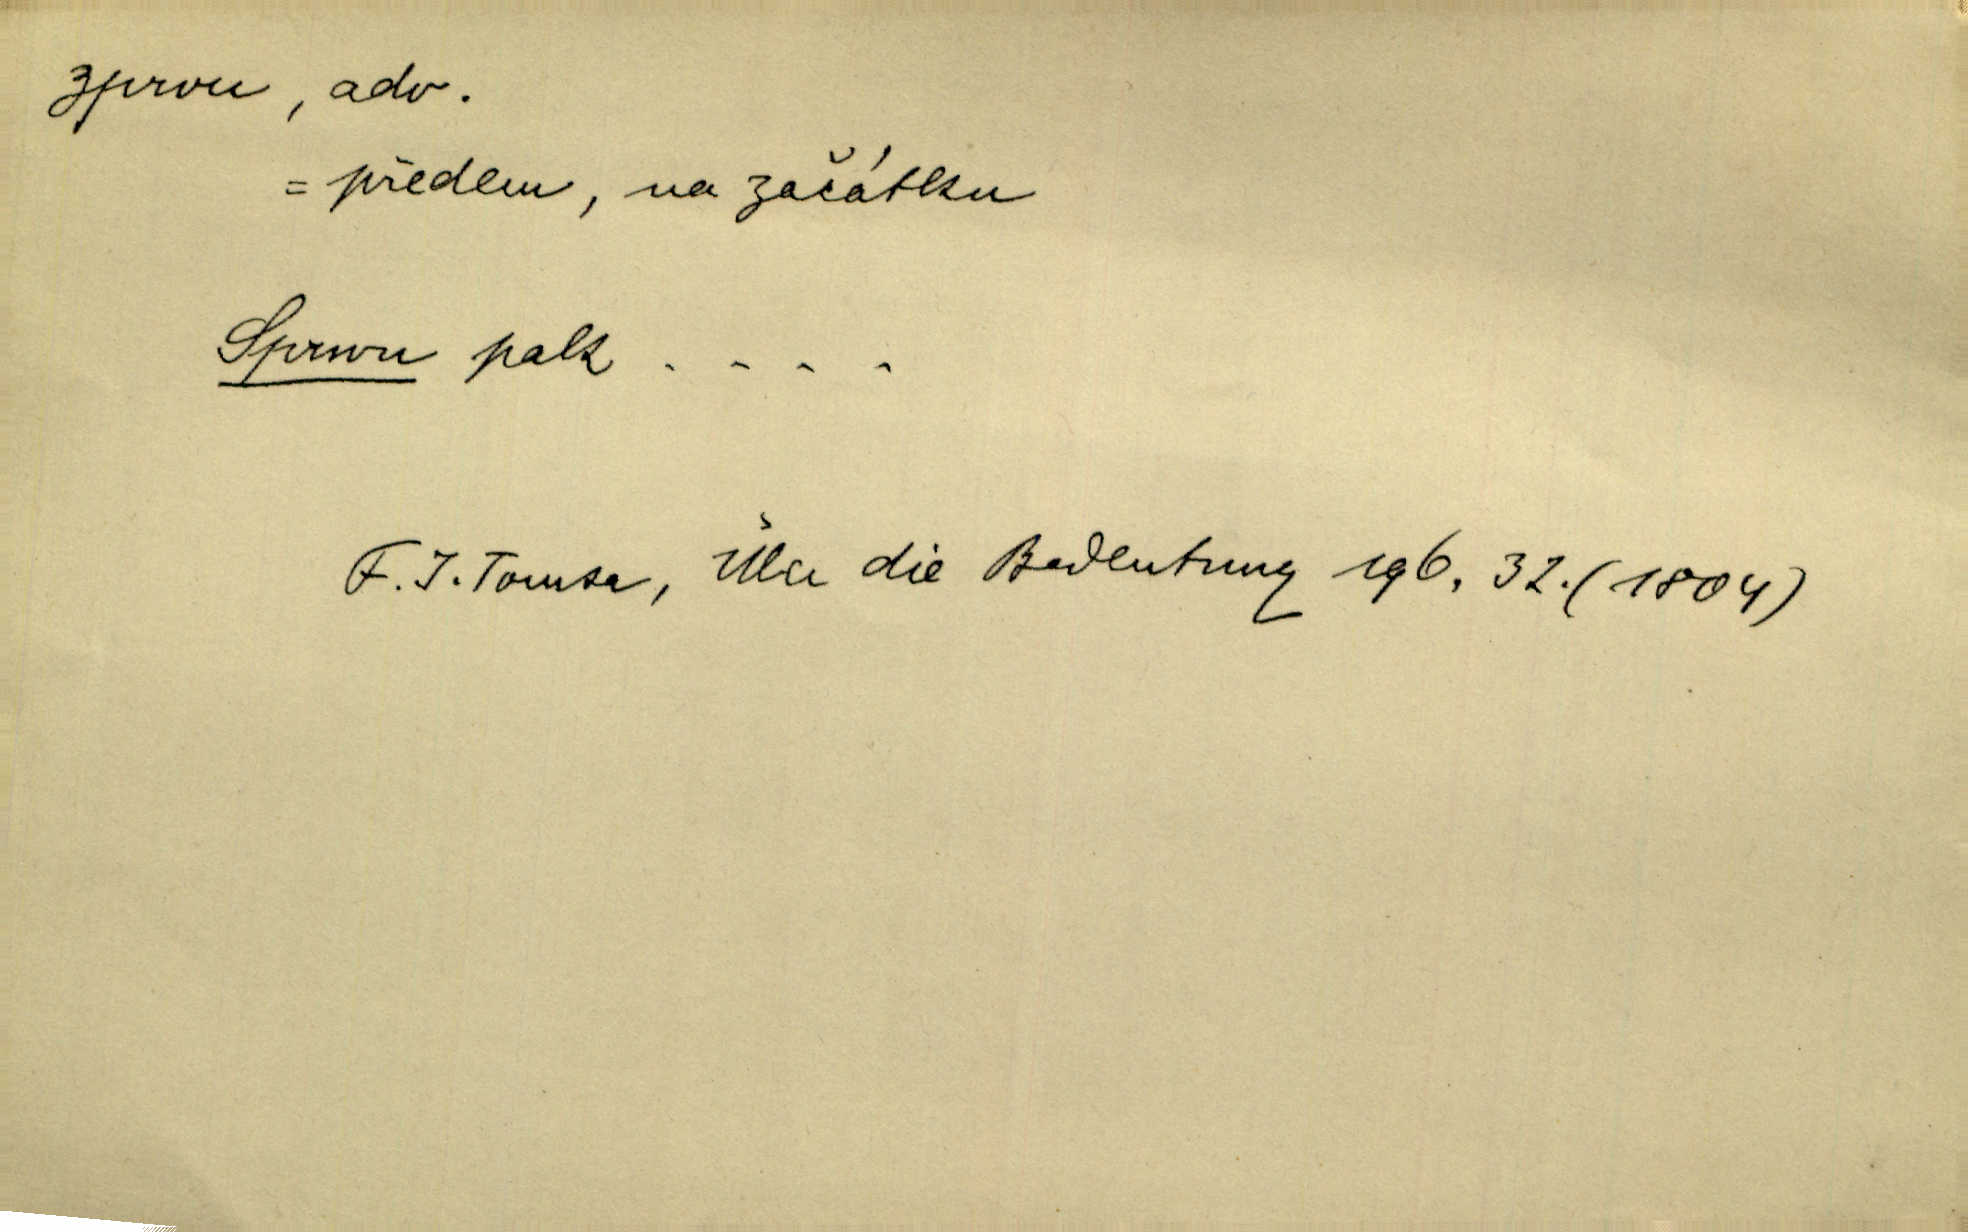 zprvu, adv.
= předem, na začátku
Sprwu pak . . . .
F. J. Tomsa, Über die Bedeutung 196, 32. (1804)